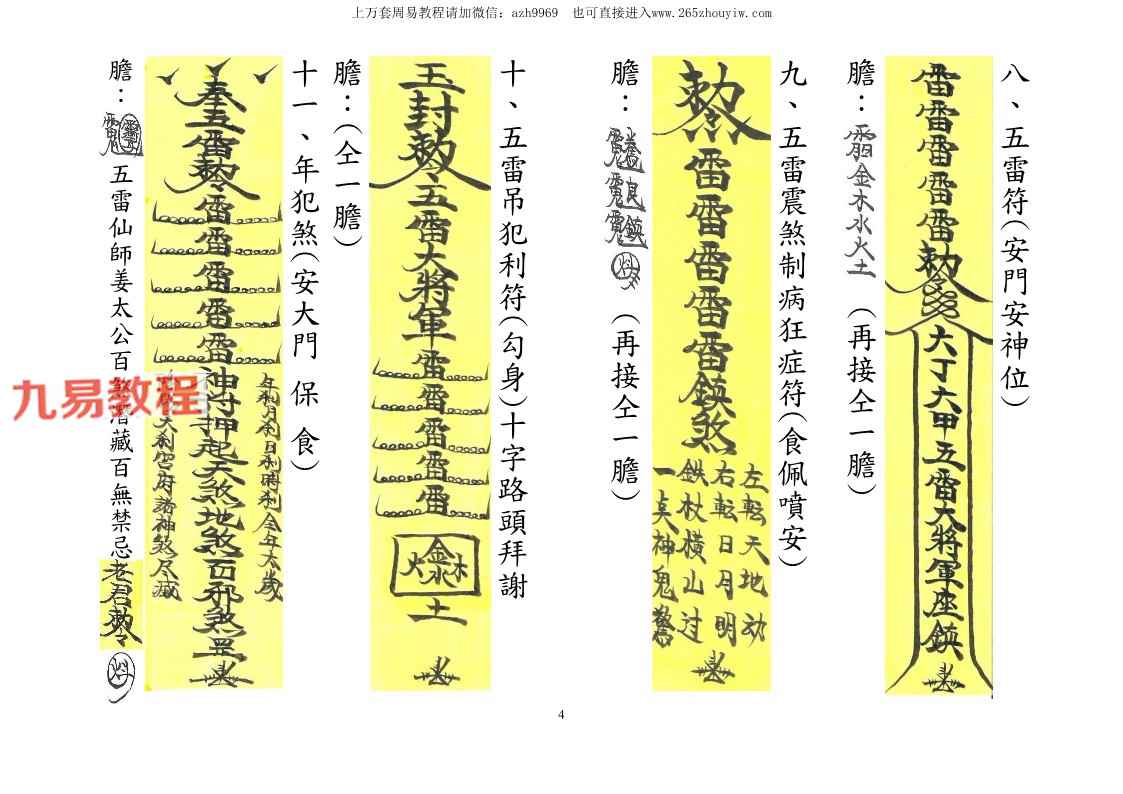 上万套周易教程请加微信：azh9969 也可直接进入www.265zhouyiw.com
八、五雷符(安門安神位)
雷雷雷雷雷
勅令
六丁六甲五雷大將軍座鎮
膽：
金木水火土
(再接仝一膽)
九、五雷震煞制病狂症符(食佩噴安)
勅
雷雷雷雷雷鎮煞
左転天地动
右転日月明
鉄杖橫山过
一奌神鬼驚
膽：
(再接仝一膽)
十、五雷吊犯利符(勾身)十字路頭拜謝
玉封勅令五雷大將軍雷雷雷雷雷
金木水火土
膽：(仝一膽)
十一、年犯煞(安大門 保 食)
奉五雷勅令雷雷雷雷雷神符押起天煞地煞百邪煞罡
年利月利日利時利今年太歲
大利宫府諸神煞尽滅
膽：
五雷仙師姜太公百煞潛藏百無禁忌老君勅令
九易教程
4